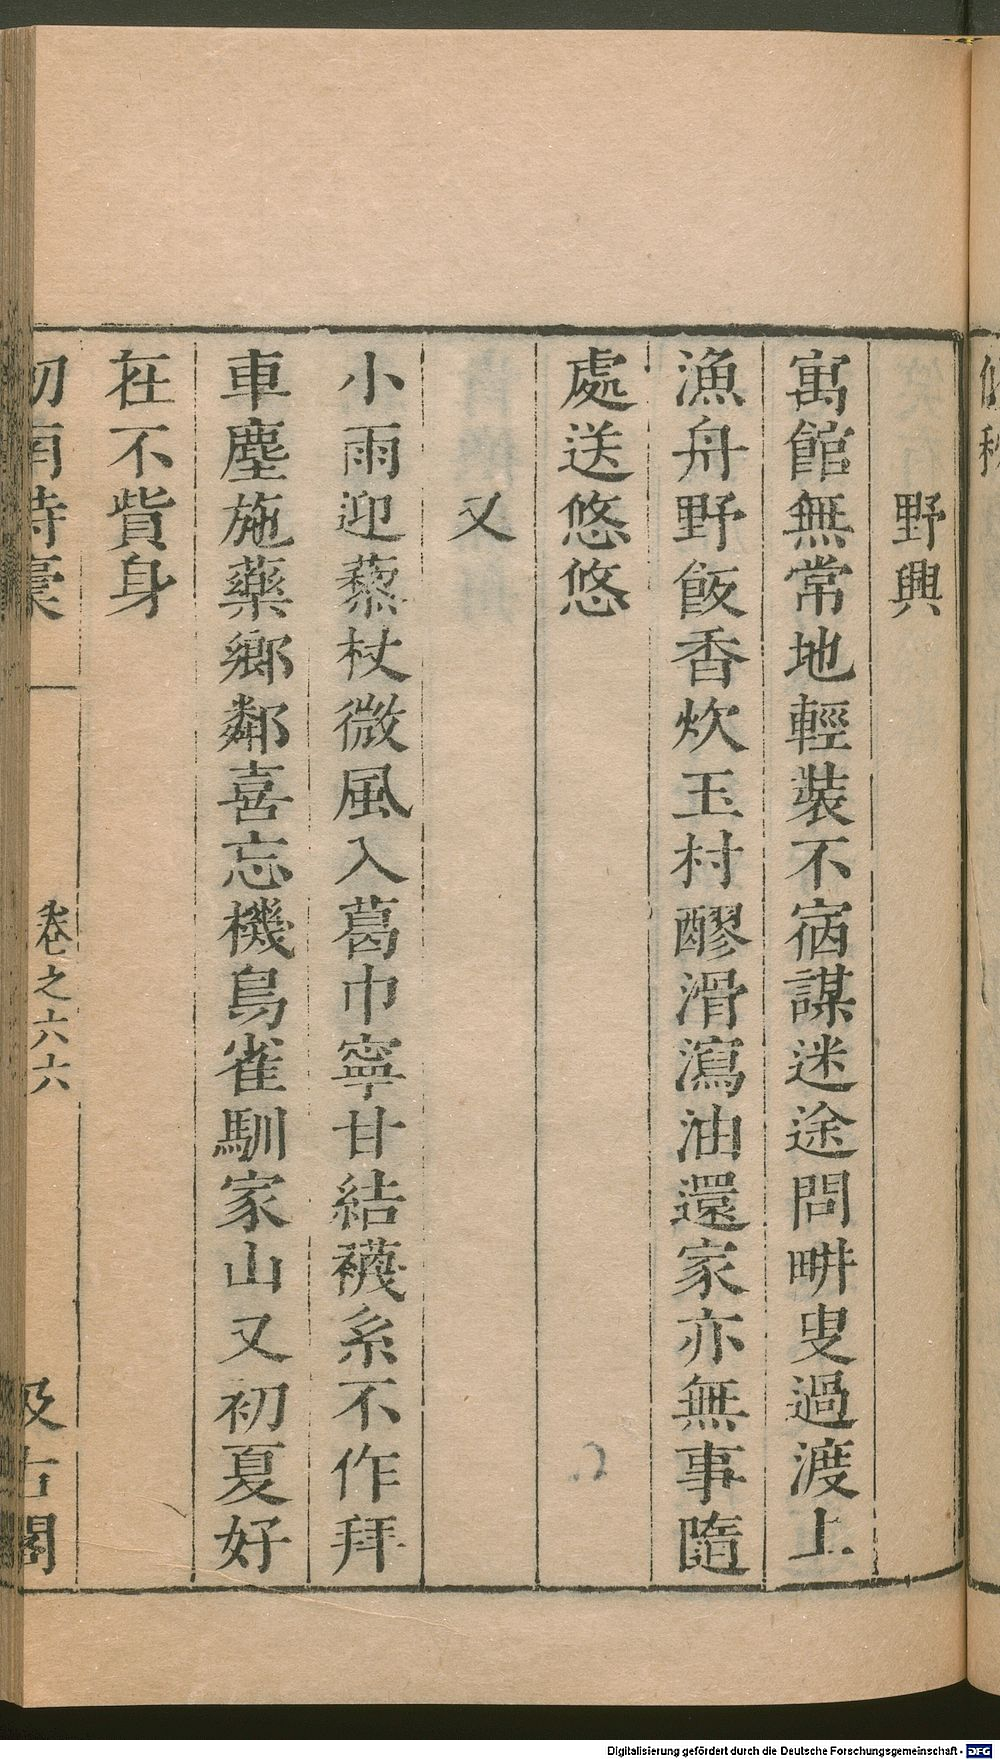 野興
寓館無常地輕裝不宿謀迷途問畊叟過渡上
漁舟野飯香炊玉村醪滑瀉油還家亦無事隨
處送悠悠
又
小雨迎藜杖微風入葛巾寧甘結襪系不作拜
車塵施藥鄉鄰喜忘機鳥雀馴家山又初夏好
在不貲身
劒南詩稾
卷之六六
汲古閣
Digitalisierung gefördert durch die Deutsche Forschungsgemeinschaft - DFG